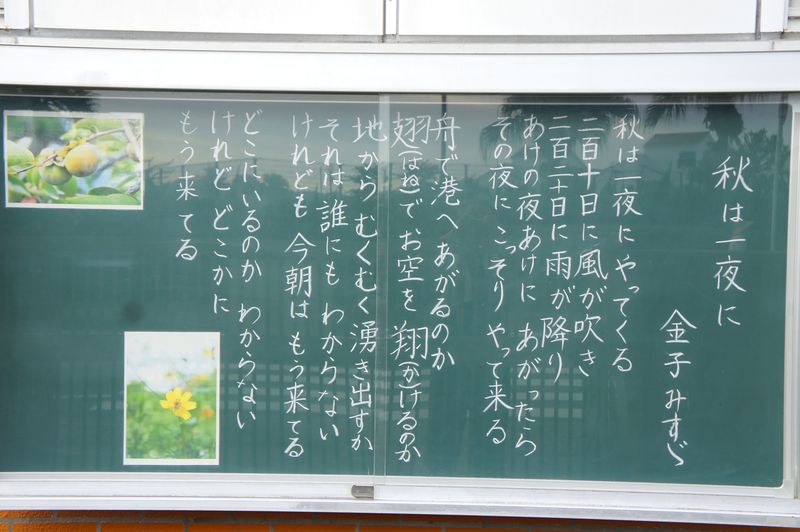 秋は一夜に
金子みすゞ
秋は一夜にやってくる
二百十日に風が吹き
二百二十日に雨が降り
あけの夜あけにあがったら
その夜にこっそりやって来る
舟で港へあがるのか
翅(はね)でお空を翔(かけ)るのか
地からむくむく湧き出すか
それは誰にもわからない
けれども今朝はもう来てる
どこにいるのかわからない
けれどどこかに
もう来てる